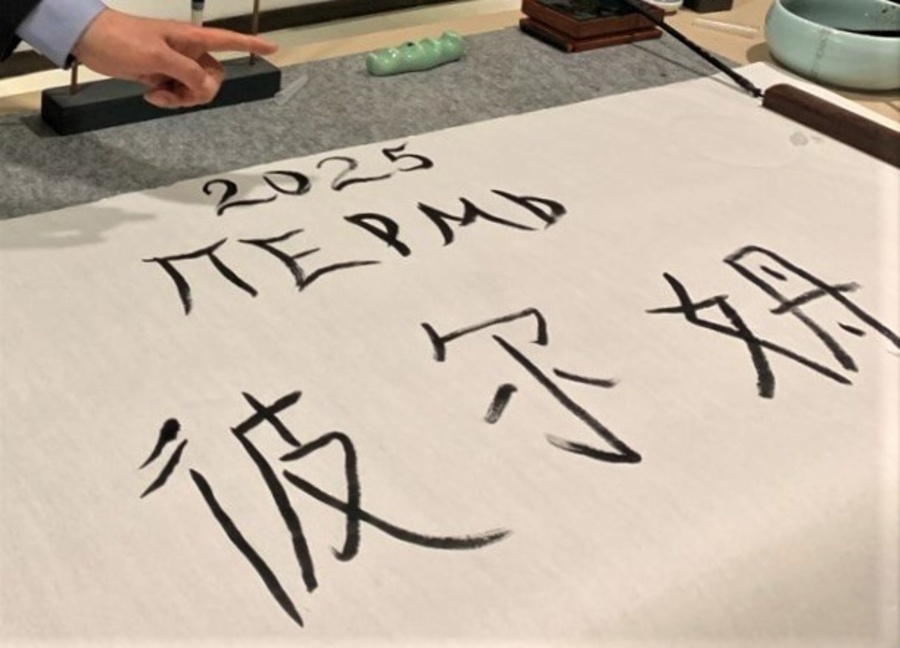 2025
ПЕРМЬ
彼尔姆